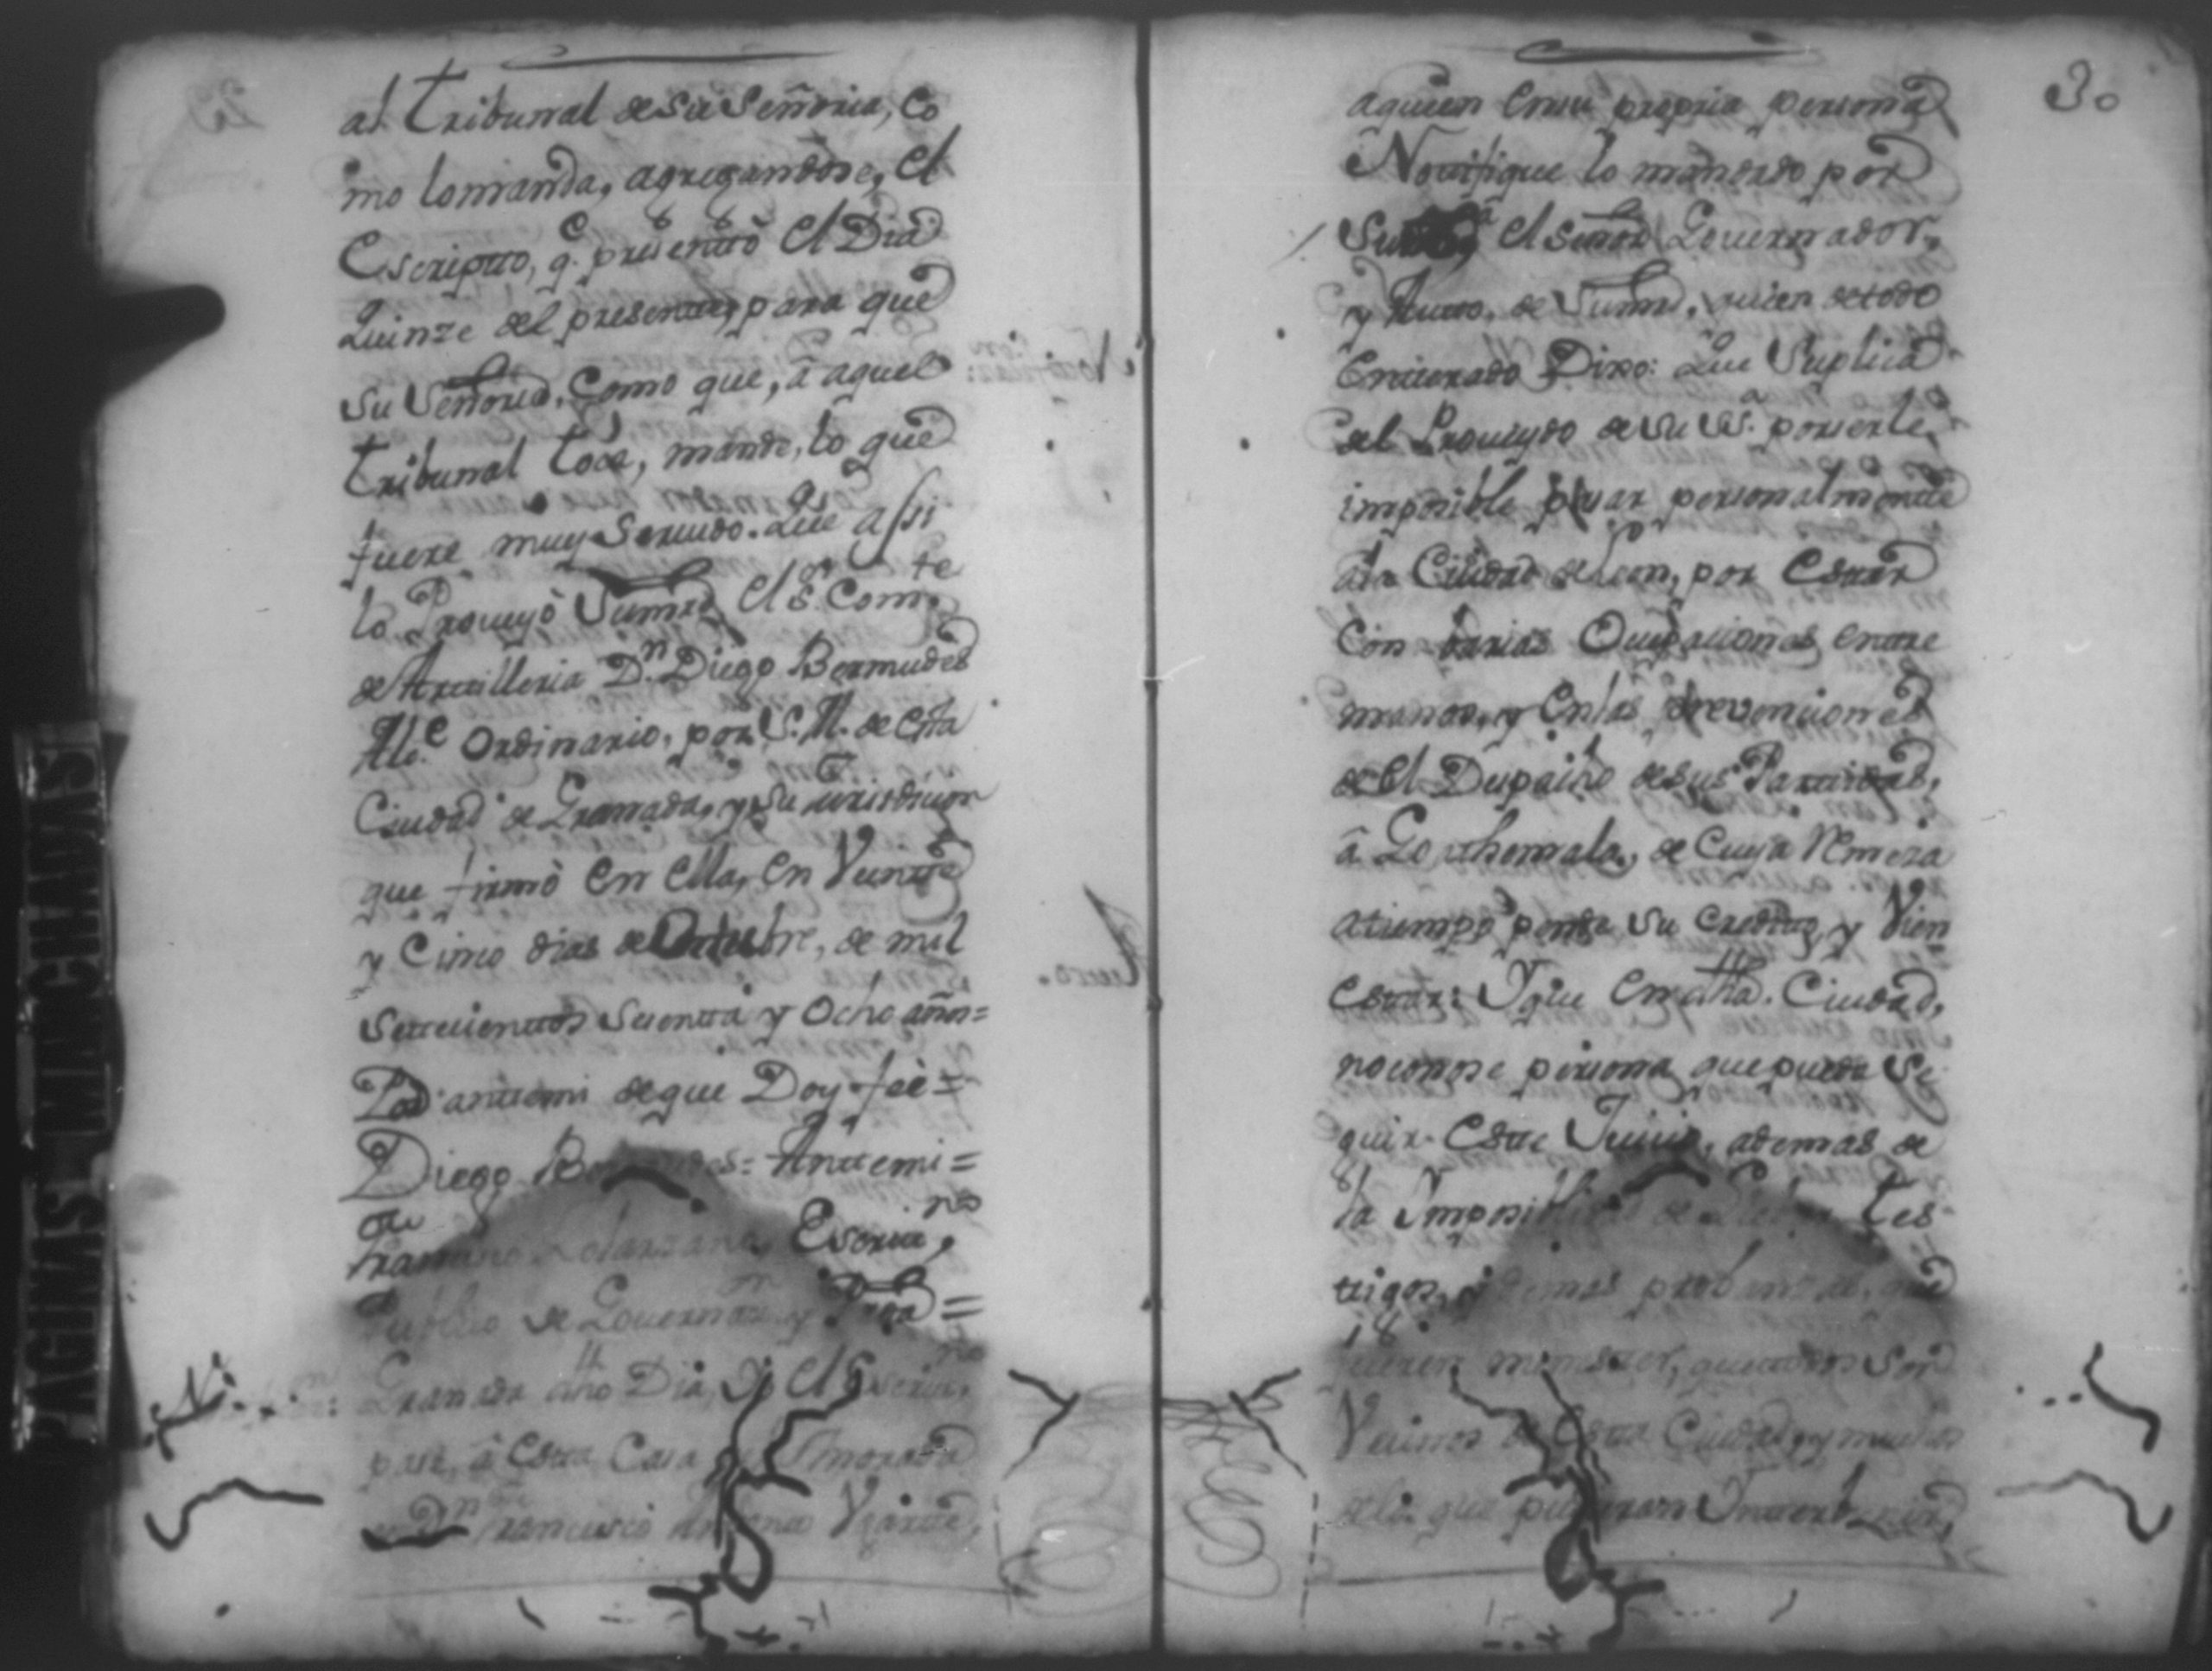 al Tribunal de su Señoria, co
mo lo manda, agregandose, el
Escripto, q.e presentó el Dia
Quinze del presente, para que
su Señoria, Como que, â aquel
tribunal toca, mande, lo que
fuere muy Servido. Que assi
lo Proveyò Sumrd. el S.or Com.te
de Artilleria D.n Diego Bermudes
Alc.e Ordinario, por S. M. de esta
Ciudad de Granada, y su Jurisdicion
que firmò en ella, en Veinte
y Cinco dias de Octubre, de mil
settecientos setenta y Ocho años=
Por antemi de que Doy feè=
Diego Bermudes= Antemi=
Escriv.no
Publico de Governa.on y
Granada dho Dia, Yo el Escriv.no
pase, â esta Casa morada
de D.n Francisco Antonio Vgarte,
30
aquien en su propria persona
Notifique lo mandado por
el Señor Governador,
y Auto, de Sumrd. quien de todo
Enterado Dixo: Que Suplica
del Proveydo de su Sª. por serle
imposible pasar personalmente
ala Ciudad de Leon, por Estar
Con varias Ocupaciones entre
manos, y en las prevenciones
de el Despacho de sus Partidas,
â Goathemala, de Cuya Remeza
atiempo pende su Credito, y Vien
estar: Y que en dha. Ciudad,
no conose persona que pueda Se
guir Este Juicio, ademas de
la Imposibilidad de tes
tigos, y demas
fueren menester, que todos son
Vecinos de Esta Ciudad, y muchos
delos que pudieran Intervenir,
PAGINAS MANCHADAS